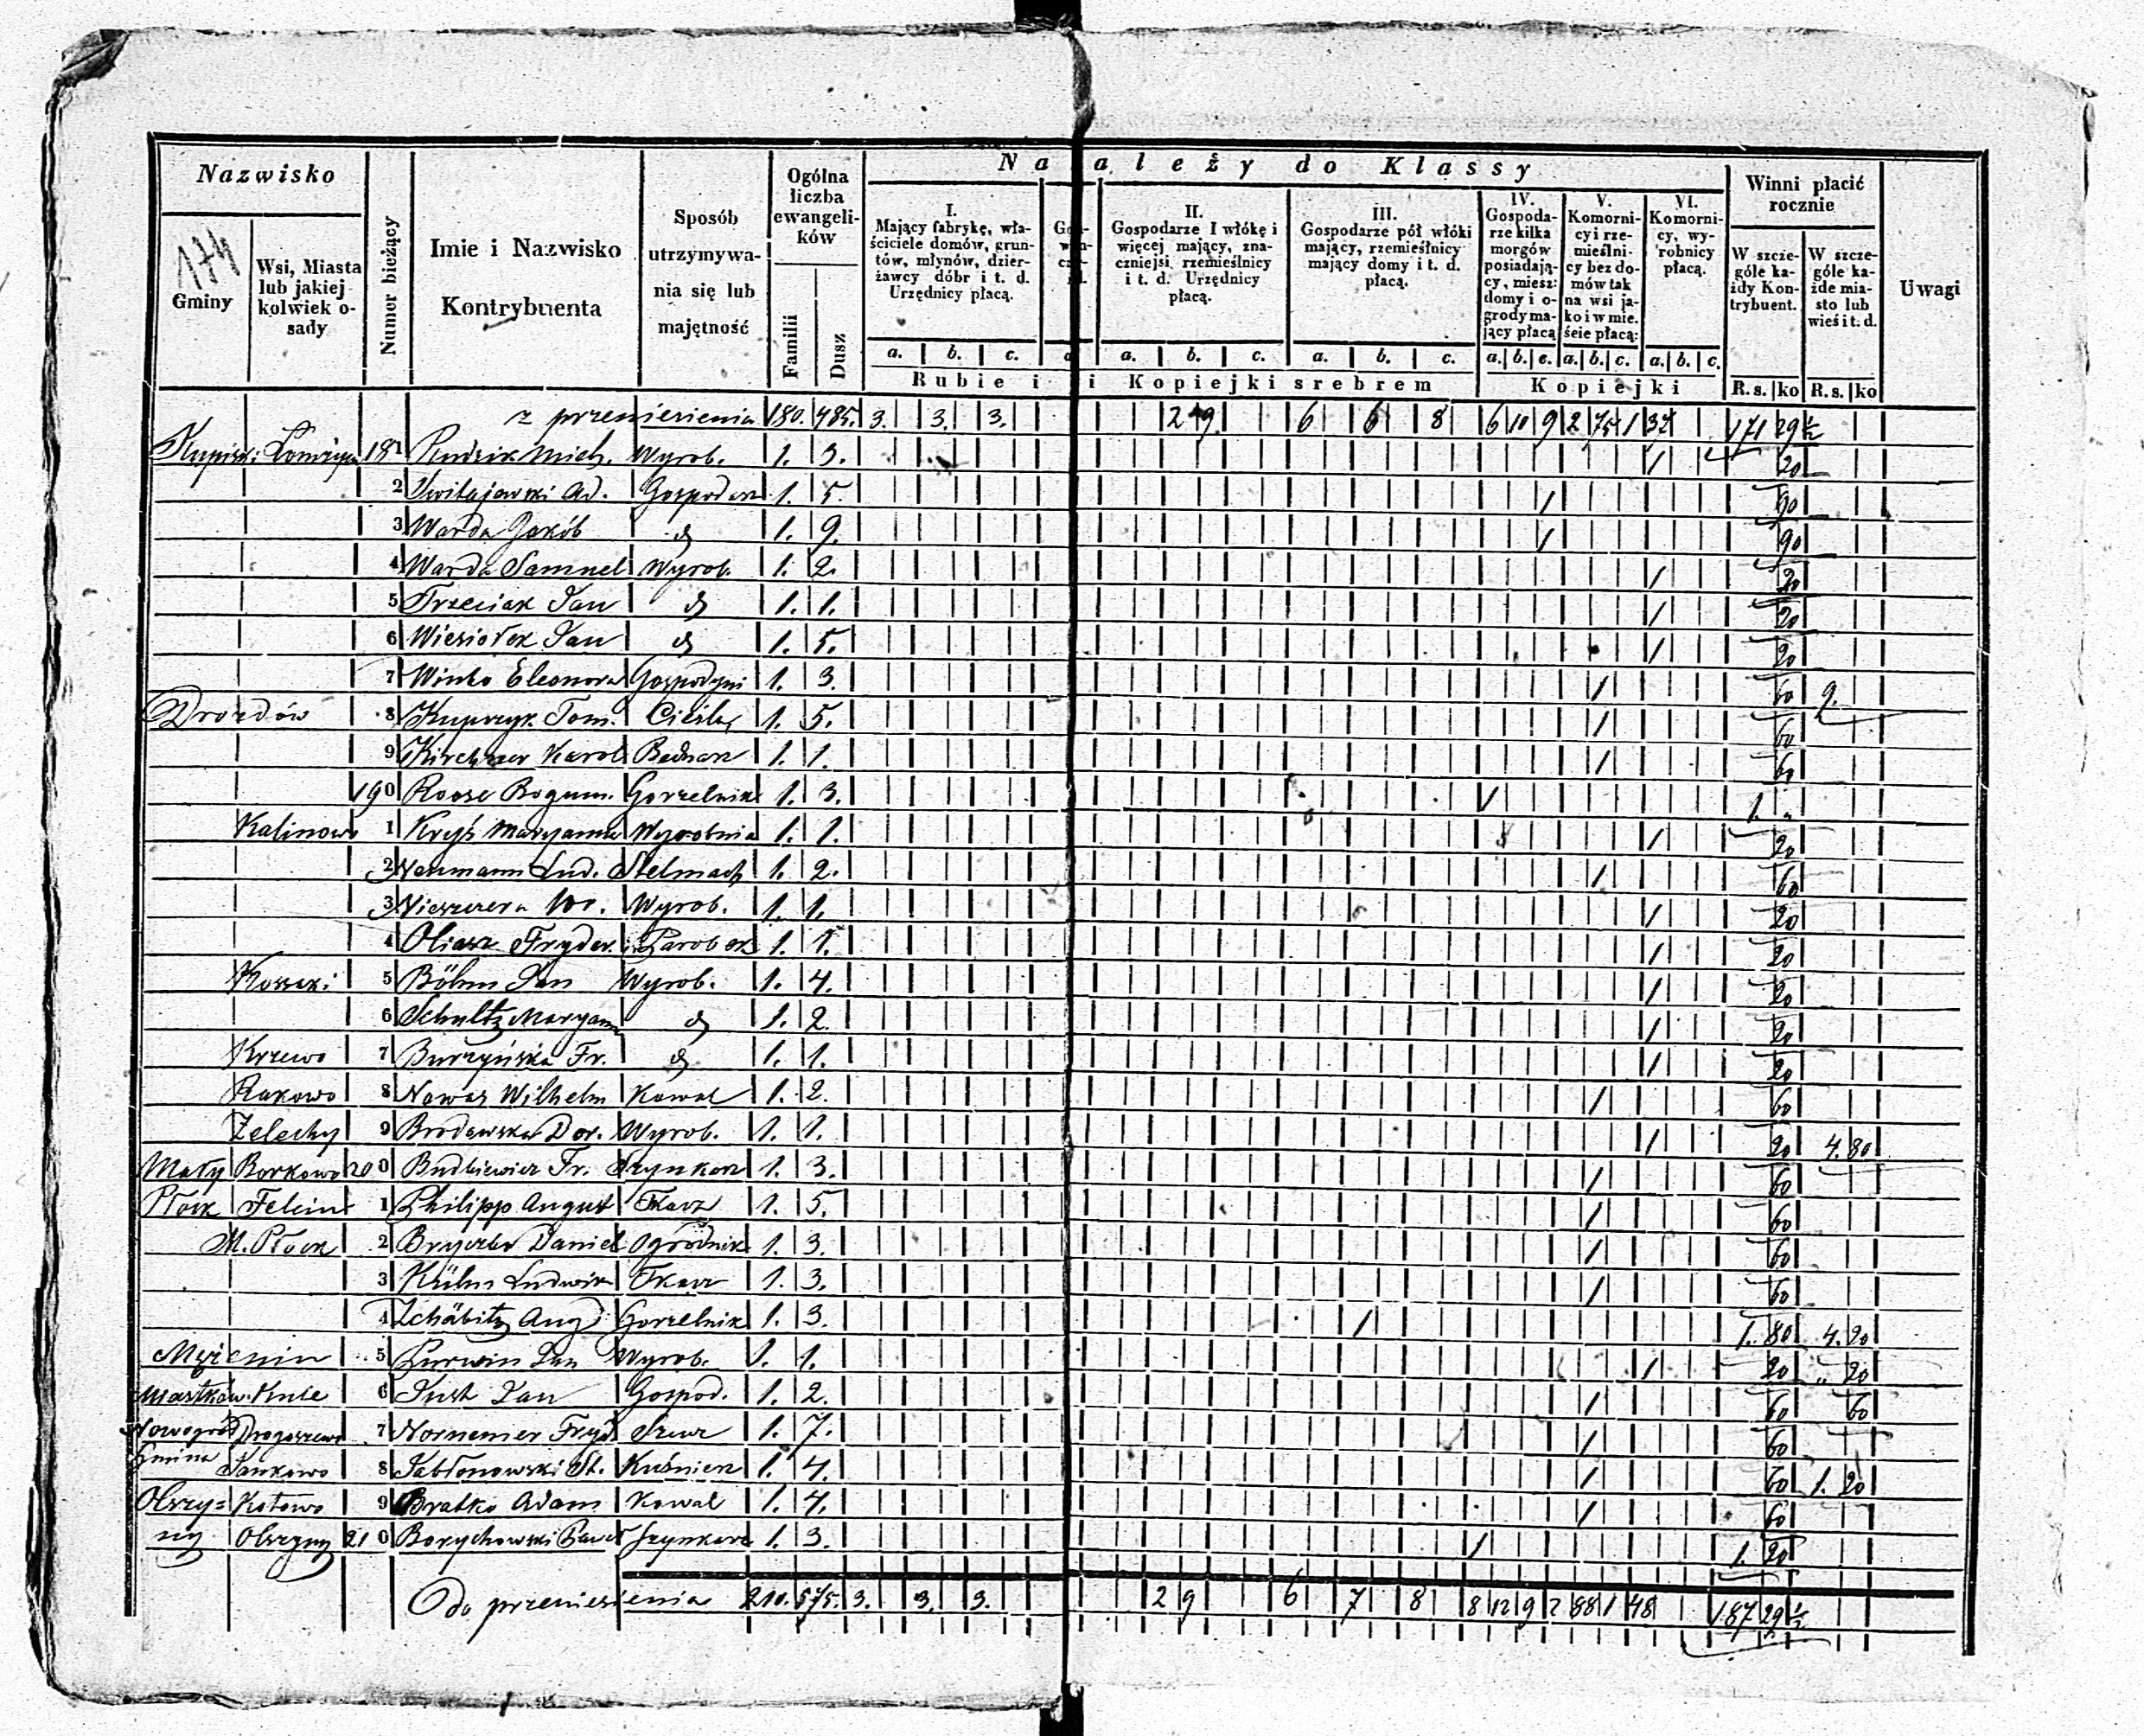 Nazwisko
174
Gminy
Wsi, Miasta lub jakiej kolwiek osady
Numor bieżący
Imie i Nazwisko
Kontrybuenta
Sposób utrzymywania się lub majętność
Ogólna liczba ewangelików
Familii
Dusz
Na ależy do Klassy
I. Mający fabrykę, właściciele domów, gruntów, młynów, dzierżawcy dóbr i t. d. Urzędnicy płacą.
II. Gospodarze I włókę i więcej mający, znaczniejsi rzemieślnicy i t. d. Urzędnicy płacą.
III. Gospodarze pół włóki mający, rzemieślnicy mający domy i t. d. płacą.
IV. Gospodarze kilka morgów posiadający, miesz: domy i ogrody mający płacą
V. Komornicy i rzemieślnicy bez domów tak na wsi jako i w mieście płacą:
VI. Komornicy, wyrobnicy płacą.
Winni płacić rocznie
W szczególe każdy Kontrybuent.
W szczególe każde miasto lub wieś i t. d.
Uwagi
a. b. c. a. b. c. a. b. c. a. b. c. a. b. c. a. b. c.
Rubie i i Kopiejki srebrem Kopiejki R. s. ko R. s. ko
z przeniesienia 180. 485. 3. 3. 3. 2 9. 6 6 8 6 10 9 2 75 1 37 171 29 ½
Kupiski Łomżyca 181 Pudzik Mich. Wyrob. 1. 3. 1 20
2 Switajewski Ad. Gospodarz 1. 5. 1 90
3 Warda Jakób d 1. 9. 1 90
4 Warda Samuel Wyrob. 1. 2. 1 20
5 Trzeciak Jan d 1. 1. 1 20
6 Wiesiołek Jan d 1. 5. 1 20
7 Winko Eleonora Gospodyni 1. 3. 1 60 9.
Drozdów 8 Kupczyk Tom. Cieśla 1. 5. 1 60
9 Kirchner Karol Bednarz 1. 1. 1 60
190 Roose Bogum. Gorzelnik 1. 3. 1 1. "
Kalinowo 1 Kryś Maryanna Wyrobnia 1. 1. 1 20
2 Neumann Lud. Stelmach 1. 2. 1 60
3 Wyrob. 1. 1. 1 20
4 Fryder. Parobek 1. 1. 1 20
Kossaki 5 Böhm Jan Wyrob. 1. 4. 1 20
6 Schultz Maryann d 1. 2. 1 20
Krzewo 7 Burzyńska Fr. d 1. 1. 1 20
Rakowo 8 Nowas Wilhelm Kowal 1. 2. 1 60
Zelechy 9 Brodowska Dor. Wyrob. 1. 1. 1 20 4. 80
Mały Borkowo 200 Budkiewicz Fr. Szynkarz 1. 3. 1 60
Płock Felein 1 Philipp August Tkacz 1. 5. 1 60
M. Płock 2 Daniel Ogrodnik 1. 3. 1 60
3 Kühn Ludwik Tkacz 1. 3. 1 60
4 Zchäbitz Aug Gorzelnik 1. 3. 1 1. 80 4. 20
Mężenin 5 Jan Wyrob. 1. 1. 1 20 " 20
Mastków Kule 6 Just Jan Gospod. 1. 2. 1 60 60
Nowogród Drogoszewo 7 Fryd Szewc 1. 7. 1 60
Gmina Jankowo 8 Jabłonowski St. Kuśnierz 1. 4. 1 60 1. 20
Olszy= Kotowo 9 Bratko Adam Kowal 1. 4. 1 60
ny Olszyny 210 Borychowski Paweł Szynkarz 1. 3. 1 1. 20
Do przeniesienia 210. 575. 3. 3. 3. 2 9 6 7 8 8 12 9 2 88 1 48 187 29 ½